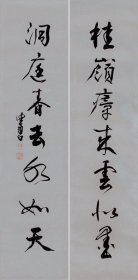 桂嶺瘴來雲似墨
洞庭春去水如天